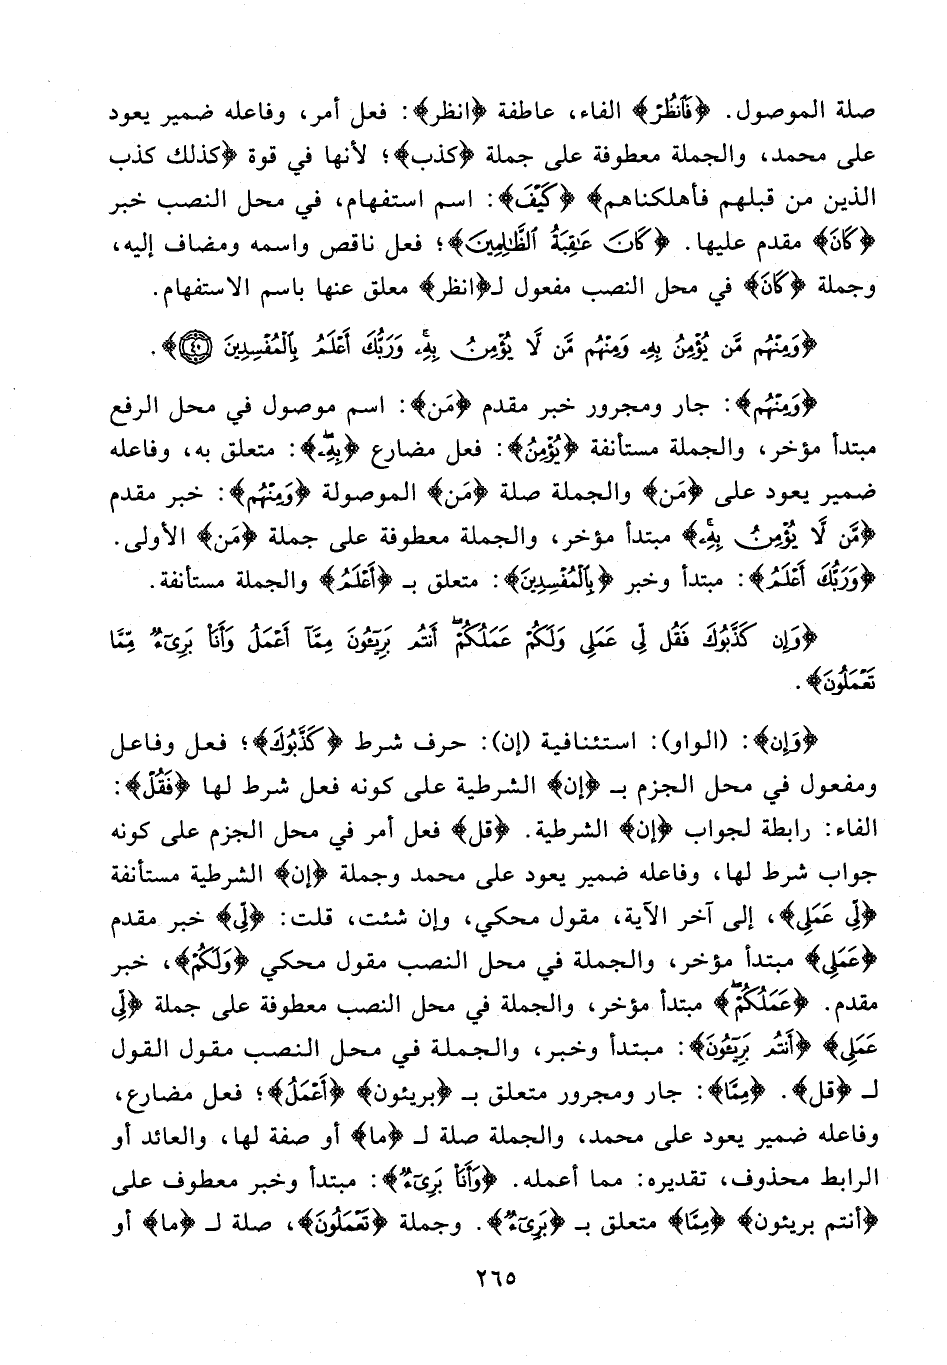 صلة الموصول. ﴿فَٱنظُرْ﴾ الفاء، عاطفة ﴿انظر﴾: فعل أمر، وفاعله ضمير يعود
على محمد، والجملة معطوفة على جملة ﴿كذب﴾؛ لأنها في قوة ﴿كذلك كذب
الذين من قبلهم فأهلكناهم﴾ ﴿كَيْفَ﴾: اسم استفهام، في محل النصب خبر
﴿كَانَ﴾ مقدم عليها. ﴿كَانَ عَٰقِبَةُ ٱلظَّٰلِمِينَ﴾؛ فعل ناقص واسمه ومضاف إليه،
وجملة ﴿كَانَ﴾ في محل النصب مفعول لـ﴿انظر﴾ معلق عنها باسم الاستفهام.
﴿وَمِنْهُم مَّن يُؤْمِنُ بِهِۦ وَمِنْهُم مَّن لَّا يُؤْمِنُ بِهِۦۚ وَرَبُّكَ أَعْلَمُ بِٱلْمُفْسِدِينَ ٤٠﴾.
﴿وَمِنْهُم﴾: جار ومجرور خبر مقدم ﴿مَن﴾: اسم موصول في محل الرفع
مبتدأ مؤخر، والجملة مستأنفة ﴿يُؤْمِنُ﴾: فعل مضارع ﴿بِهِۦۖ﴾: متعلق به، وفاعله
ضمير يعود على ﴿مَن﴾ والجملة صلة ﴿مَن﴾ الموصولة ﴿وَمِنْهُم﴾: خبر مقدم
﴿مَّن لَّا يُؤْمِنُ بِهِۦۚ﴾ مبتدأ مؤخر، والجملة معطوفة على جملة ﴿مَن﴾ الأولى.
﴿وَرَبُّكَ أَعْلَمُ﴾: مبتدأ وخبر ﴿بِٱلْمُفْسِدِينَ﴾: متعلق بـ ﴿أَعْلَمُ﴾ والجملة مستأنفة.
﴿وَإِن كَذَّبُوكَ فَقُل لِّى عَمَلِى وَلَكُمْ عَمَلُكُمْۖ أَنتُم بَرِيٓـُٔونَ مِمَّآ أَعْمَلُ وَأَنَا۠ بَرِىٓءٌ مِّمَّا
تَعْمَلُونَ﴾.
﴿وَإِن﴾: (الواو): استئنافية (إن): حرف شرط ﴿كَذَّبُوكَ﴾؛ فعل وفاعل
ومفعول في محل الجزم بـ ﴿إن﴾ الشرطية على كونه فعل شرط لها ﴿فَقُل﴾:
الفاء: رابطة لجواب ﴿إن﴾ الشرطية. ﴿قل﴾ فعل أمر في محل الجزم على كونه
جواب شرط لها، وفاعله ضمير يعود على محمد وجملة ﴿إن﴾ الشرطية مستأنفة
﴿لِّى عَمَلِى﴾، إلى آخر الآية، مقول محكي، وإن شئت، قلت: ﴿لِّى﴾ خبر مقدم
﴿عَمَلِى﴾ مبتدأ مؤخر، والجملة في محل النصب مقول محكي ﴿وَلَكُمْ﴾، خبر
مقدم. ﴿عَمَلُكُمْۖ﴾ مبتدأ مؤخر، والجملة في محل النصب معطوفة على جملة ﴿لِّى
عَمَلِى﴾ ﴿أَنتُم بَرِيٓـُٔونَ﴾: مبتدأ وخبر، والجملة في محل النصب مقول القول
لـ ﴿قل﴾. ﴿مِمَّا﴾: جار ومجرور متعلق بـ ﴿بريئون﴾ ﴿أَعْمَلُ﴾؛ فعل مضارع،
وفاعله ضمير يعود على محمد، والجملة صلة لـ ﴿ما﴾ أو صفة لها، والعائد أو
الرابط محذوف، تقديره: مما أعمله. ﴿وَأَنَا۠ بَرِىٓءٌ﴾: مبتدأ وخبر معطوف على
﴿أنتم بريئون﴾ ﴿مِمَّا﴾ متعلق بـ ﴿بَرِىٓءٌ﴾. وجملة ﴿تَعْمَلُونَ﴾، صلة لـ ﴿ما﴾ أو
٢٦٥